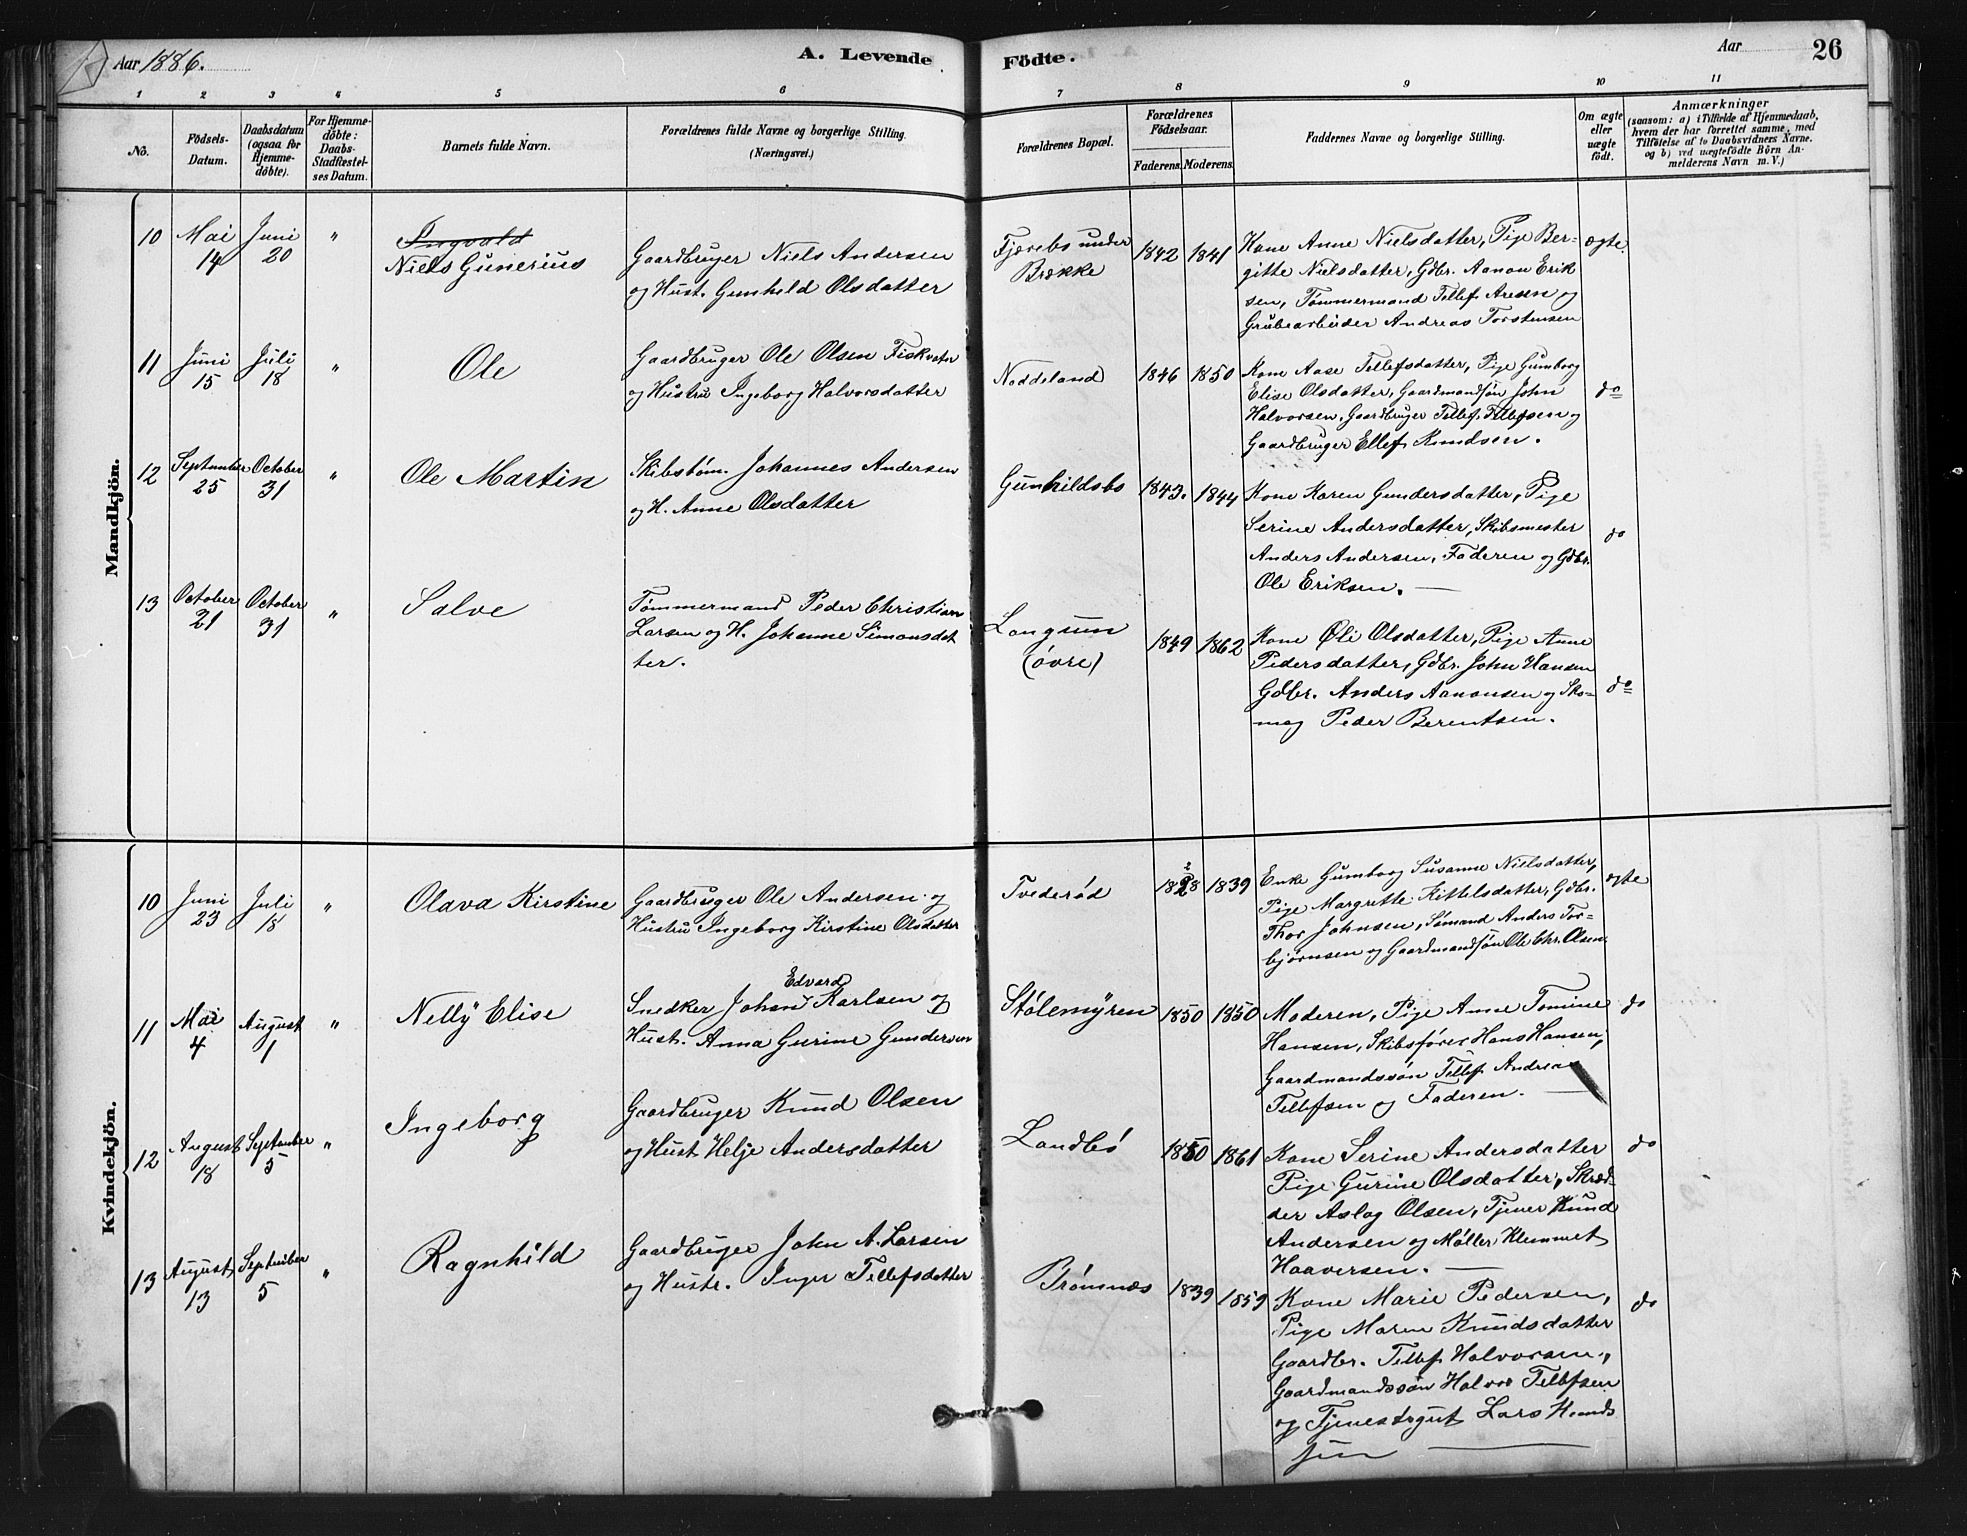 Aar 1886.
A. Levende
Födte.
Aar
26
1 2 3 4 5 6 7 8 9 10 11
No.
Födsels-
Datum.
Daabsdatum
(ogsaa for
Hjemme-
döbte).
For Hjemme-
döbte:
Daabs-
Stadfæstel-
ses Datum.
Barnets fulde Navn.
Forældrenes fulde Navne og borgerlige Stilling.
(Næringsvei.)
Forældrenes Bopæl.
Forældrenes
Födselsaar.
Faderens. Moderens.
Faddernes Navne og borgerlige Stilling.
Om ægte
eller
uægte
født.
Anmærkninger
(saasom: a) i Tilfælde af Hjemmedaab,
hvem der har forrettet samme, med
Tilföielse af to Daabsvidners Navne.
og b) ved uægtefödte Börn An-
melderens Navn m. V.)
Mandkjön.
10
Mai
14
Juni
20
"
Ingvald
Niels Gunerius
Gaardbruger Niels Andersen
og Hust. Gunhild Olsdatter
Fjærebo under
Brække
1842 1841
Kone Anne Nielsdatter, Pige Ber-
gitte Nielsdatter, Gdbr. Aanon Erik
sen, Tømmermand Tellef Aresen og
Grubearbeider Andreas Torstensen
ægte.
11
Juni
15
Juli
18
"
Ole
Gaardbruger Ole Olsen Fiskvatn
og Hustru Ingeborg Halvorsdatter
Noddeland
1846 1850
Kone Aase Tellefsdatter, Pige Gumborg
Elise Olsdatter, Gaardmandsøn John
Halvorsen, Gaardbruger Tellef Tellefsen og
Gaardbruger Ellef Knudsen.
do
12
September
25
October
31
"
Ole Martin
Skibstøm. Johannes Andersen
og H. Anne Olsdatter
Gunhildsbo
1843. 1844
Kone Karen Gundersdatter, Pige
Serine Andersdatter, Skibsmester
Anders Andersen, Faderen og Gdbr.
Ole Eriksen.
do
13
October
21
October
31
"
Salve
Tømmermand Peder Christian
Larsen og H. Johanne Simonsdat
ter.
Langsum
(øvre)
1849 1862
Kone Øli Olsdatter, Pige Anne
Pedersdatter, Gdbr. John Hansen
Gdbr. Anders Aanonsen og Sko-
mag Peder Berentsen.
do
Kvindekjön.
10
Juni
23
Juli
18
"
Olava Kirstine
Gaardbruger Ole Andersen og
Hustru Ingeborg Kirstine Olsdatter
Tvederød
1828 1839
Enke Gumborg Susanne Nielsdatter,
Pige Margrette Kittelsdatter, Gdbr.
Thor Johnsen, Sømand Anders Tor-
bjørnsen og Gaardmandsøn Ole Chr. Olsen.
ægte
11
Mai
4
August
1
"
Nelly Elise
Edvard
Snedker Johan Karlsen og
Hust. Anna Gurine Gundersen
Stølemyren
1850 1850
Moderen, Pige Anne Tomine
Hansen, Skibsfører Hans Hansen,
Gaardmandssøn Tellef Andreas
Tellefsen og Faderen.
do
12
August
18
September
5
"
Ingeborg
Gaardbruger Knud Olsen
og Hust Helje Andersdatter
Landbø
1850 1861
Kone Serine Andersdatter
Pige Gurine Olsdatter, Skræd-
der Aslag Olsen, Tjener Knud
Andersen og Møller Klemmet
Haaversen.
do
13
August
13
September
5
"
Ragnhild
Gaardbruger John A. Larsen
og Hustr. Inger Tellefsdatter
Brømnæs
1839 1859
Kone Marie Pedersen,
Pige Maren Knudsdatter
Gaardbr. Tellef Halvorsen,
Gaardmandssøn Halvor Tellefsen
og Tjenestegut Lars Knud
sen
do